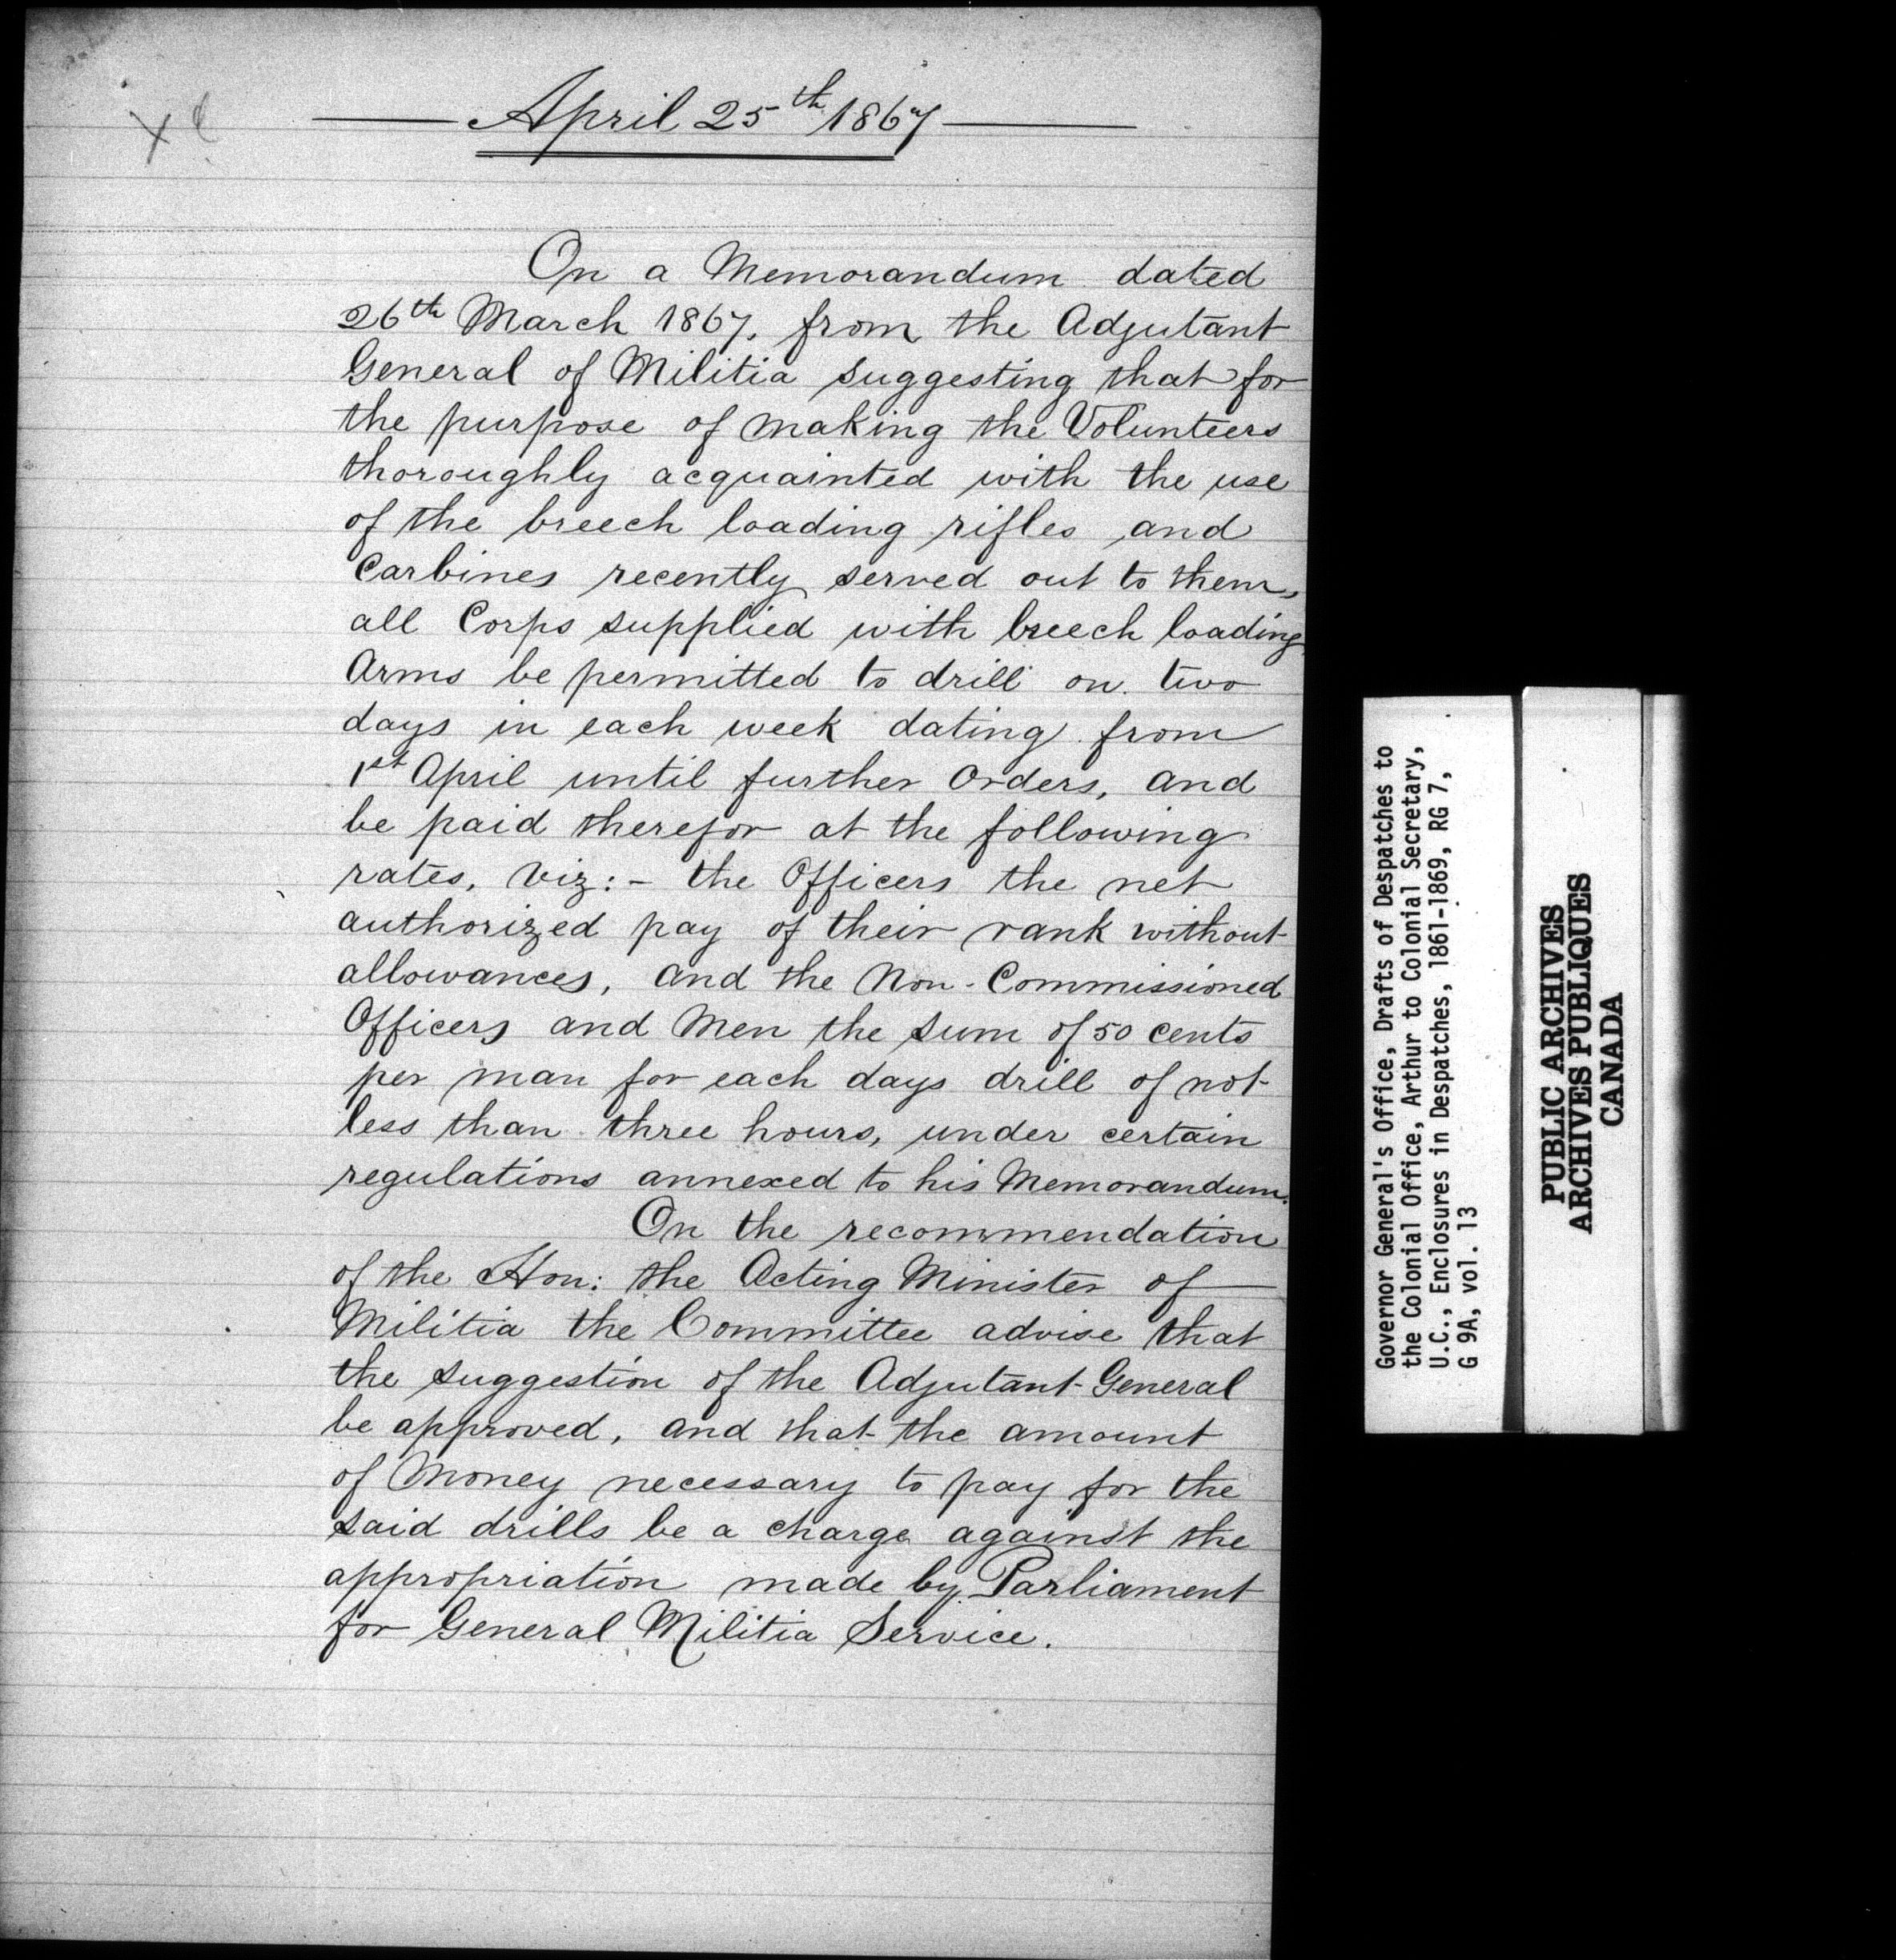 April 25th 1867
On a Memorandum dated
26th March 1867, from the Adjutant
General of Militia suggesting that for
the purpose of making the Volunteers
thoroughly acquainted with the use
of the breech loading rifles and
Carbines recently served out to them,
all Corps supplied with breech loading
Arms be permitted to drill on two
days in each week dating from
1st April until further Orders, and
be paid therefor at the following
rates, viz:- the Officers the net
authorized pay of their rank without
allowances, and the Non-Commissioned
Officers and Men the sum of 50 cents
per man for each days drill of not
less than three hours, under certain
regulations annexed to his Memorandum.
On the recommendation
of the Hon: the Acting Minister of
Militia the Committee advise that
the suggestion of the Adjutant General
be approved, and that the amount
of Money necessary to pay for the
said drills be a charge against the
appropriation made by Parliament
for General Militia Service.
Governor General's Office, Drafts of Despatches to
the Colonial Office, Arthur to Colonial Secretary,
U.C., Enclosures in Despatches, 1861-1869, RG 7,
G 9A, vol. 13
PUBLIC ARCHIVES
ARCHIVES PUBLIQUES
CANADA